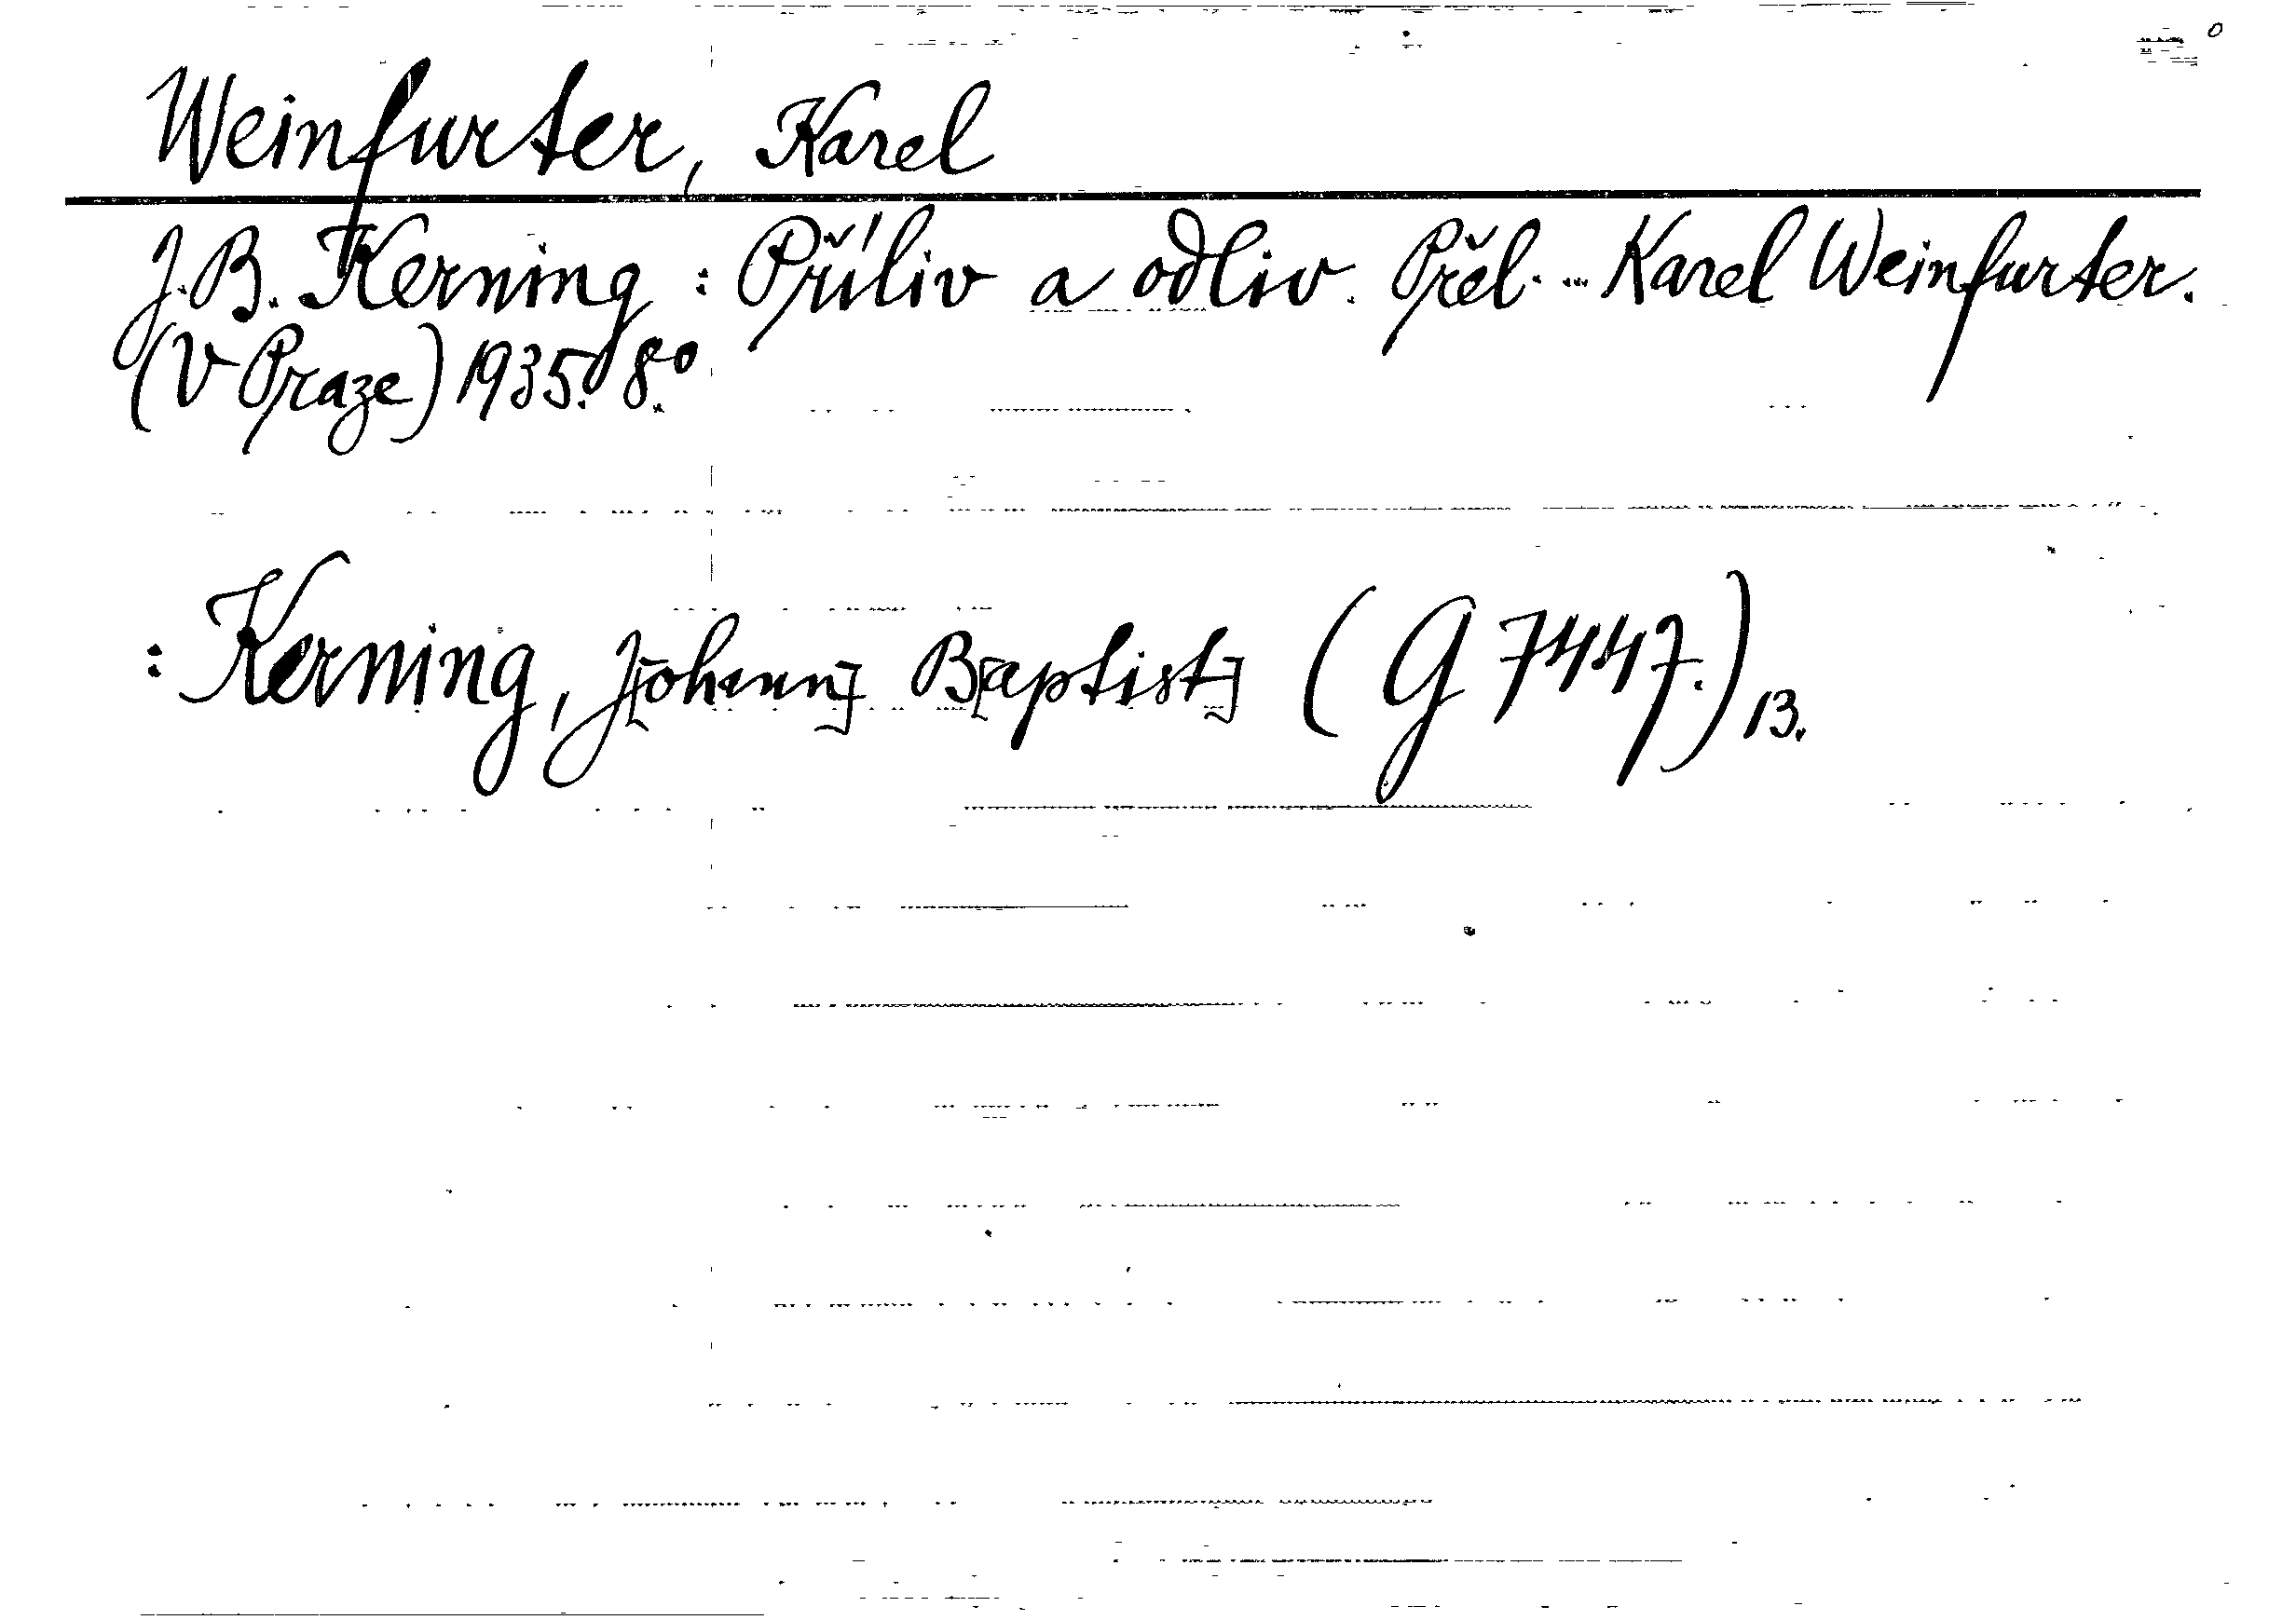 Weinfurter, Karel
J. B. Kerning : Příliv a odliv. Přel. ... Karel Weinfurter.
(V Praze) 1935. 8.º
: Kerning, J[ohann] B[aptist] (G 7447.) 13.